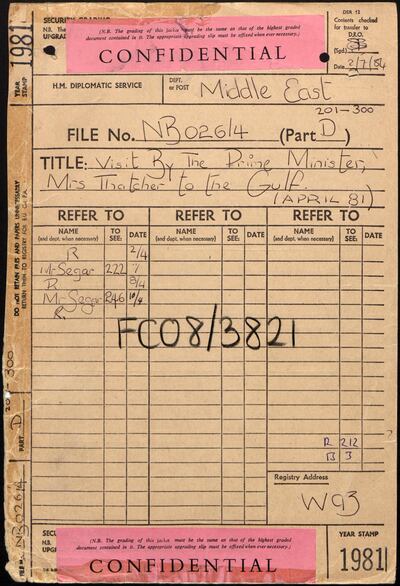 SECURITY GRADING
N.B. The
UPGRAD
(N.B. The grading of this jacket must be the same as that of the highest graded
document contained in it. The appropriate upgrading slip must be affixed when ever necessary.)
CONFIDENTIAL
DER 12
Contents checked
for transfer to
D.R.O.
(Sgd.)
Date 2/7/84
1981
YEAR
STAMP
H.M. DIPLOMATIC SERVICE
DEPT.
or POST
Middle East
201-300
FILE No. NB026/4 (Part D)
TITLE: Visit By The Prime Minister,
Mrs Thatcher to the Gulf.
(APRIL 81)
REFER TO REFER TO REFER TO
NAME
(and dept. when necessary)
TO
SEE:
DATE
NAME
(and dept. when necessary)
TO
SEE:
DATE
NAME
(and dept. when necessary)
TO
SEE:
DATE
R 2/4
Mr Segar 222
R 8/4
Mr Segar 246 10/4
R.
FCO8/3821
R 212
B 3
Registry Address
W93
DO NOT RETAIN FILES AND PAPERS UNNECESSARILY
RETURN THEM TO REGISTRY FOR B.U. OR P.A.
201-300
PART D
FILE No. NB026/4
SECU
N.B.
UPGR
(N.B. The grading of this jacket must be the same as that of the highest graded
document contained in it. The appropriate upgrading slip must be affixed when ever necessary.)
CONFIDENTIAL
YEAR STAMP
1981